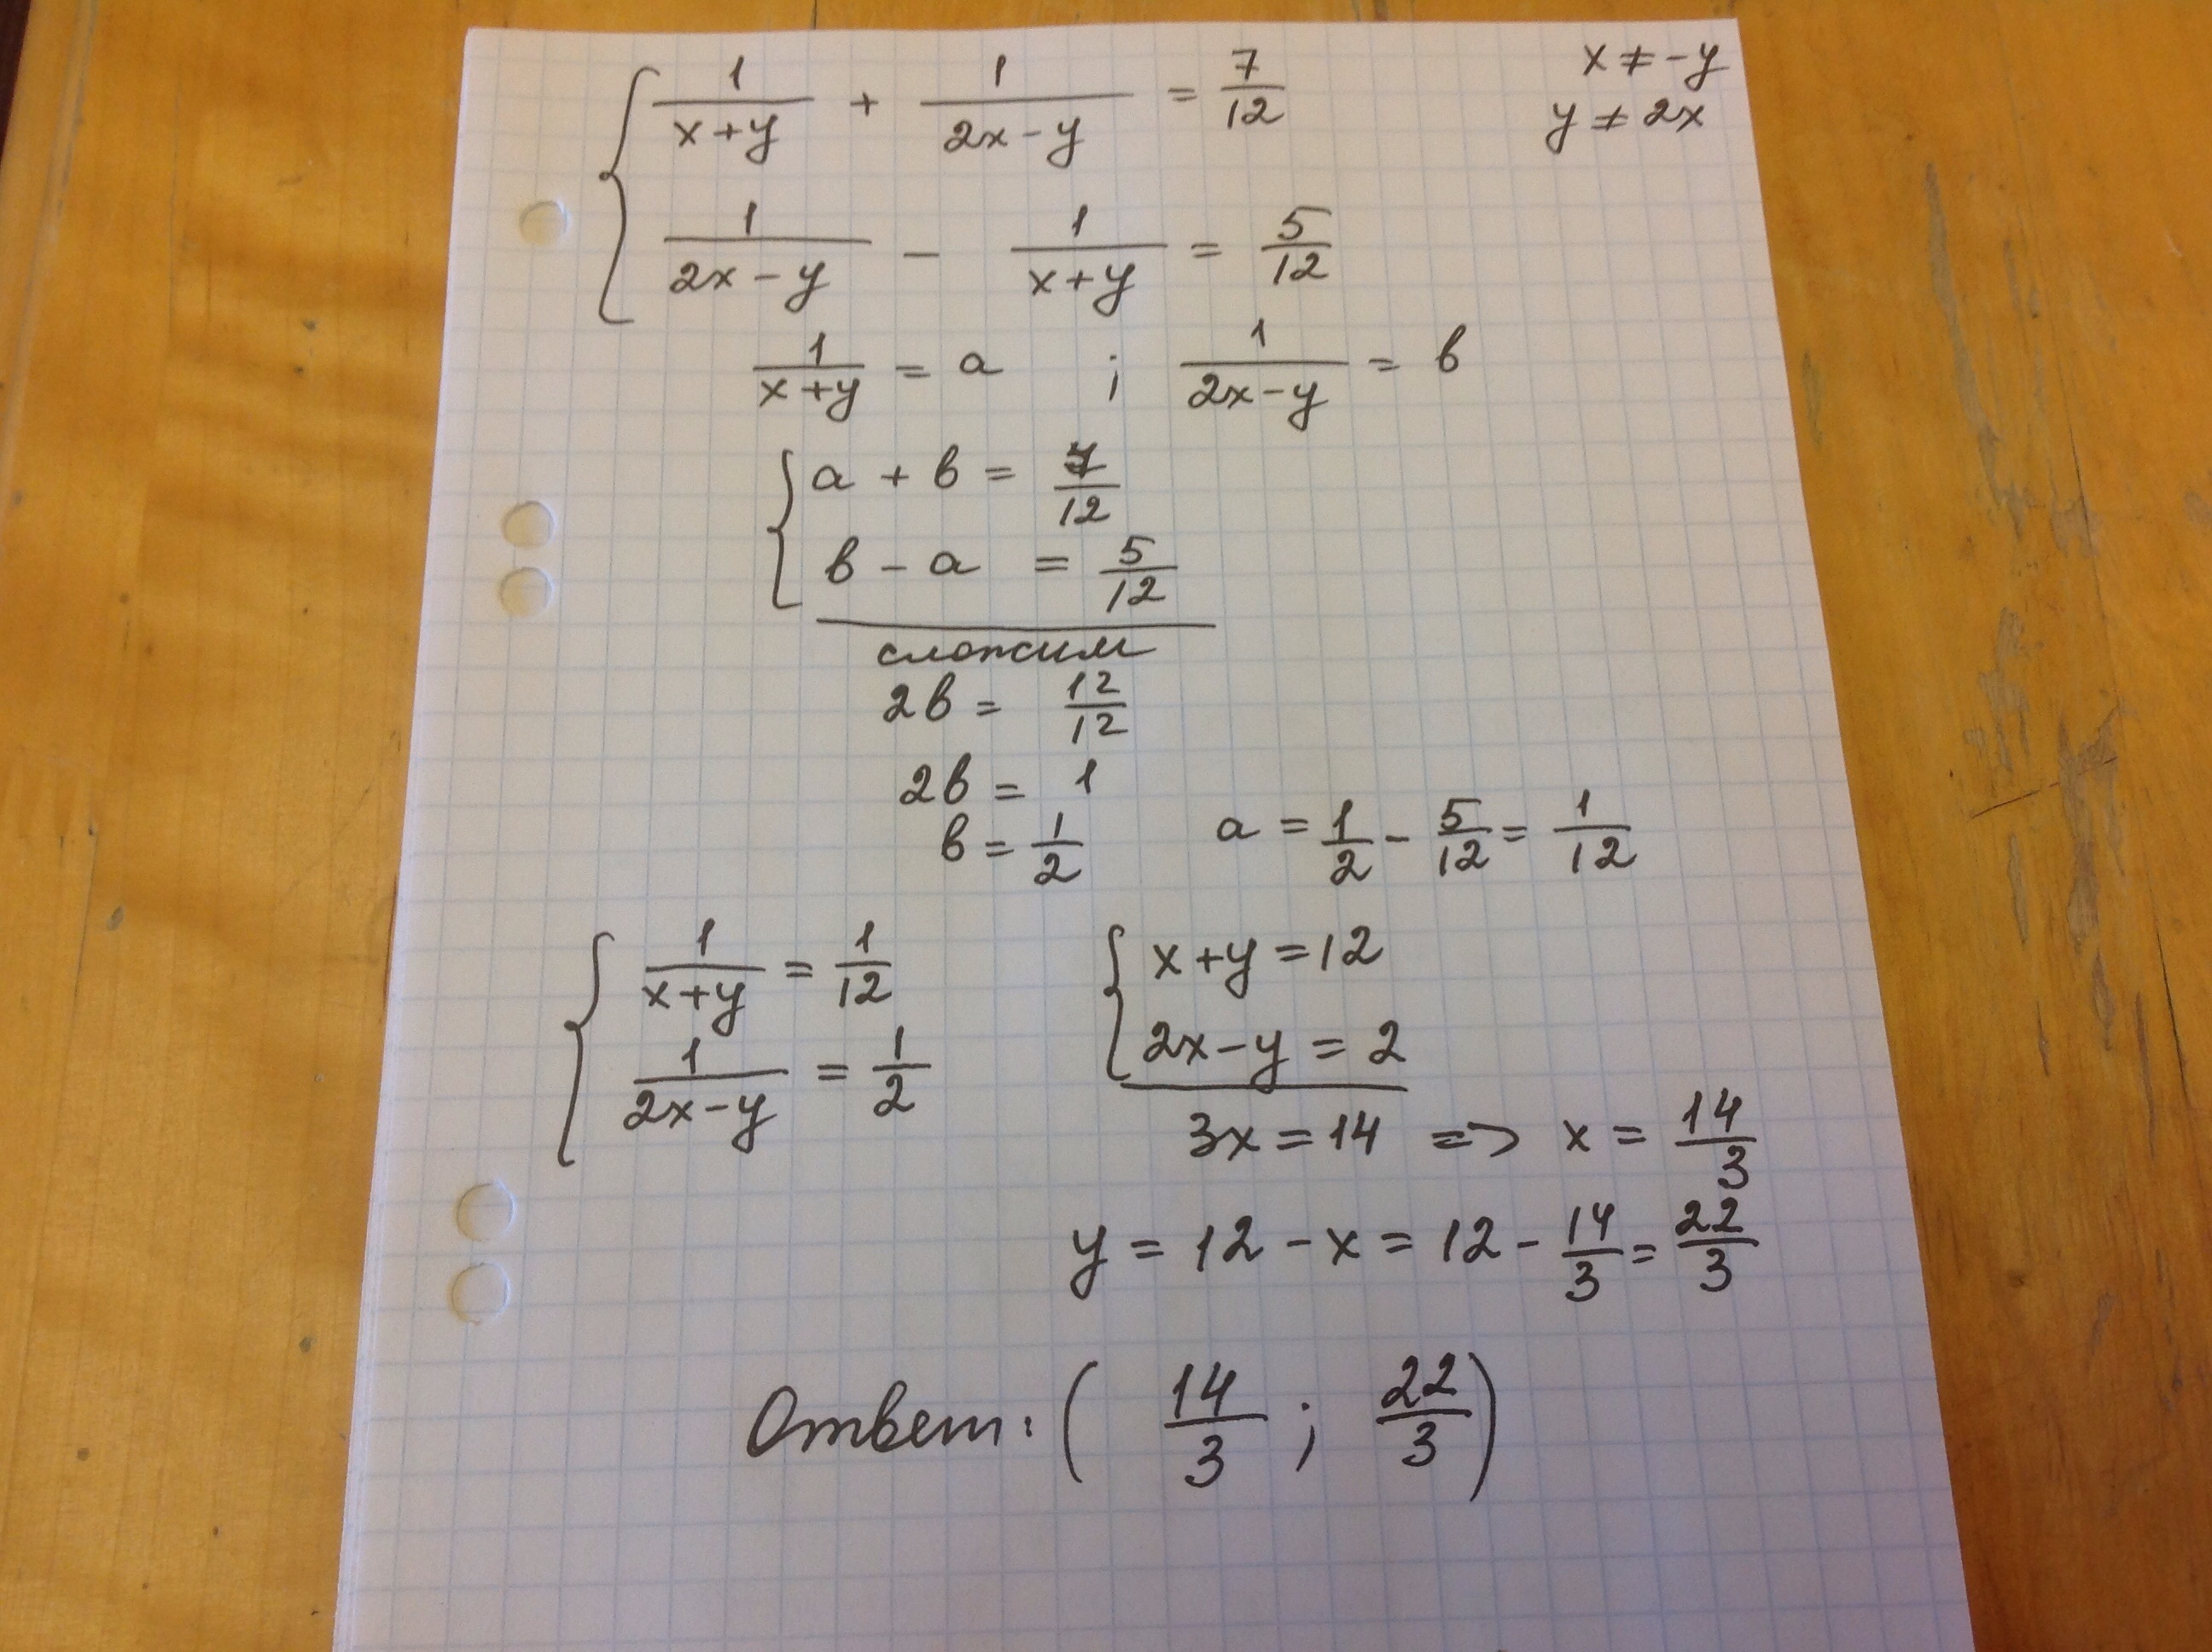 1/(x+y) + 1/(2x-y) = 7/12    x ≠ -y
y ≠ 2x
1/(2x-y) - 1/(x+y) = 5/12
1/(x+y) = a ; 1/(2x-y) = в
a + в = 7/12
в - a = 5/12
сложим
2в = 12/12
2в = 1
в = 1/2    a = 1/2 - 5/12 = 1/12
1/(x+y) = 1/12    x+y = 12
1/(2x-y) = 1/2    2x-y = 2
3x = 14 => x = 14/3
y = 12 - x = 12 - 14/3 = 22/3
Ответ: (14/3 ; 22/3)